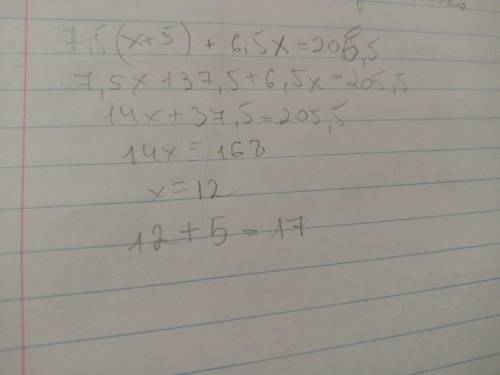 7,5(x+5) + 6,5x=205,5
7,5x+37,5+6,5x=205,5
14x+37,5=205,5
14x=168
x=12
12+5=17